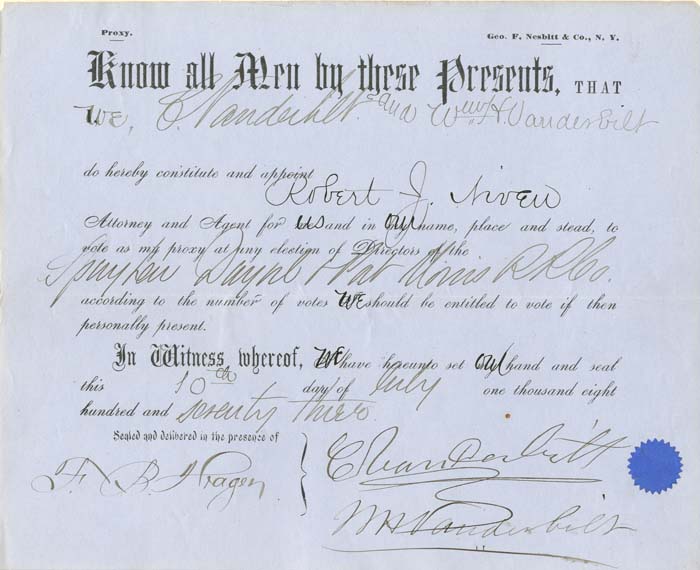 Proxy.
Geo. F. Nesbitt & Co., N. Y.
Know all Men by these Presents, THAT
We, C. Vanderbilt and Wm H. Vanderbilt
do hereby constitute and appoint
Robert J. Niven
Attorney and Agent for us and in our name, place and stead, to
vote as my proxy at any election of Directors of the
Spuyten Duyvil & Port Morris R R Co.
according to the number of votes We should be entitled to vote if then
personally present.
In Witness whereof, We have hereunto set our hand and seal
this 10th day of July one thousand eight
hundred and seventy three
Sealed and delivered in the presence of
F. B.
C Vanderbilt
W H Vanderbilt